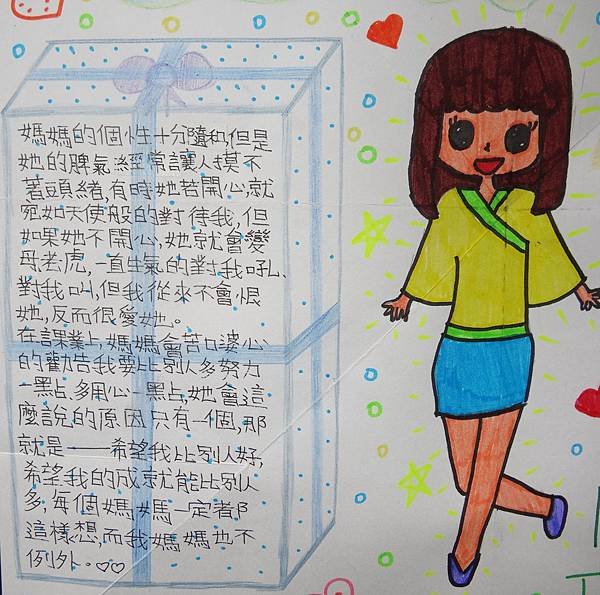 媽媽的個性十分隨和,但是
她的脾氣經常讓人摸不
著頭緒,有時她若開心,就
宛如天使般的對待我,但
如果她不開心,她就會變
母老虎,一直生氣的對我吼、
對我叫,但我從來不會恨
她,反而很愛她。
在課業上,媽媽會苦口婆心
的勸告我要比別人多努力
一點、多用心一點,她會這
麼說的原因只有一個,那
就是——希望我比別人好,
希望我的成就能比別人
多,每個媽媽一定都
這樣想,而我媽媽也不
例外。♡♡